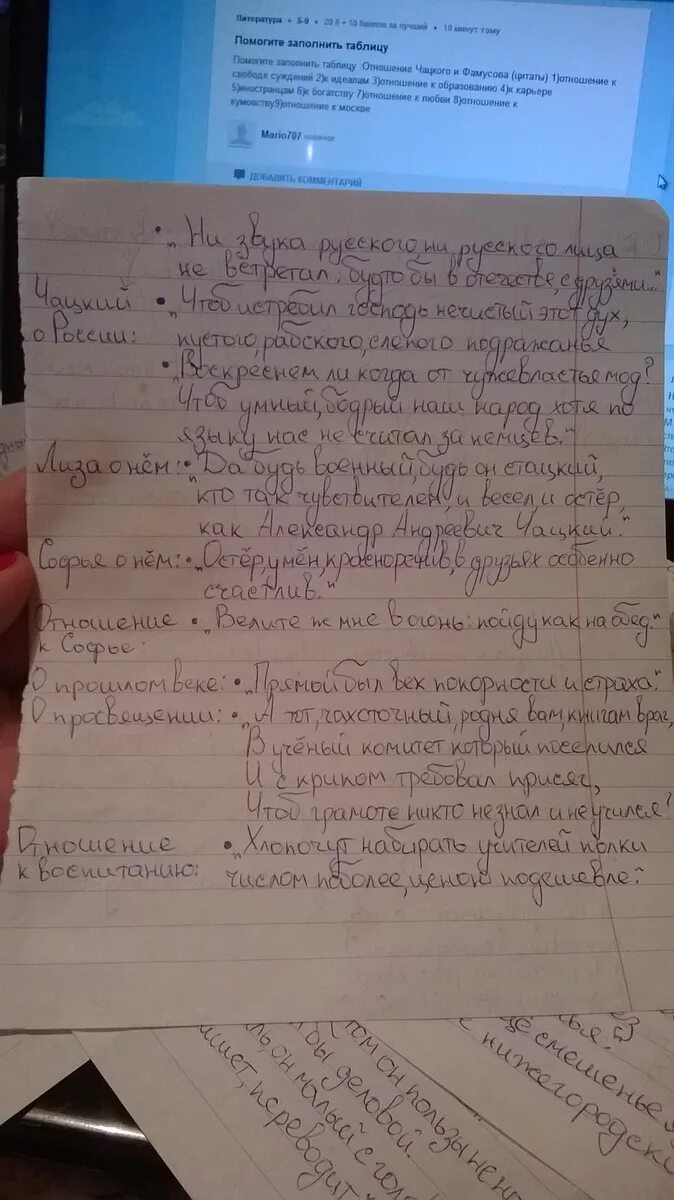 Литература • 5-9 • 20 б + 10 баллов за лучший • 19 минут тому
Помогите заполнить таблицу
Помогите заполнить таблицу :Отношение Чацкого и Фамусова (цитаты) 1)отношение к
свободе суждений 2)к идеалам 3)отношение к образованию 4)к карьере
5)иностранцам 6)к богатству 7)отношение к любви 8)отношение к
кумовству9)отношение к москве
Mario707 новичок
ДОБАВИТЬ КОММЕНТАРИЙ
• „Ни звука русского, ни русского лица
не встретал: будто бы в отечестве, с друзьями..."
Чацкий • „Чтоб истребил господь нечистый этот дух,
о России: пустого, рабского, слепого подражанья
• „Воскреснем ли когда от чужевластья мод?
Чтоб умный, бодрый наш народ хотя по
языку нас не считал за немцев."
Лиза о нём: • „Да будь военный, будь он стацкий,
кто так чувствителен, и весел, и остёр,
как Александр Андреевич Чацкий."
Софья о нём: • „Остёр, умён, красноречив, в друзьях особенно
счастлив."
Отношение • „Велите ж мне в огонь: пойду как на обед."
к Софье:
О прошлом веке: • „Прямой был век покорности и страха."
О просвещении: • „А тот, чахоточный, родня вам, книгам враг,
В учёный комитет который поселился
И с криком требовал присяг,
Чтоб грамоте никто не знал и не учился?
Отношение • „Хлопочут набирать учителей полки
к воспитанию: числом поболее, ценою подешевле."
том он пользы
бы деловой.
ль, он малый с
ишет, переводит
ещё смешенье
с нижегородски